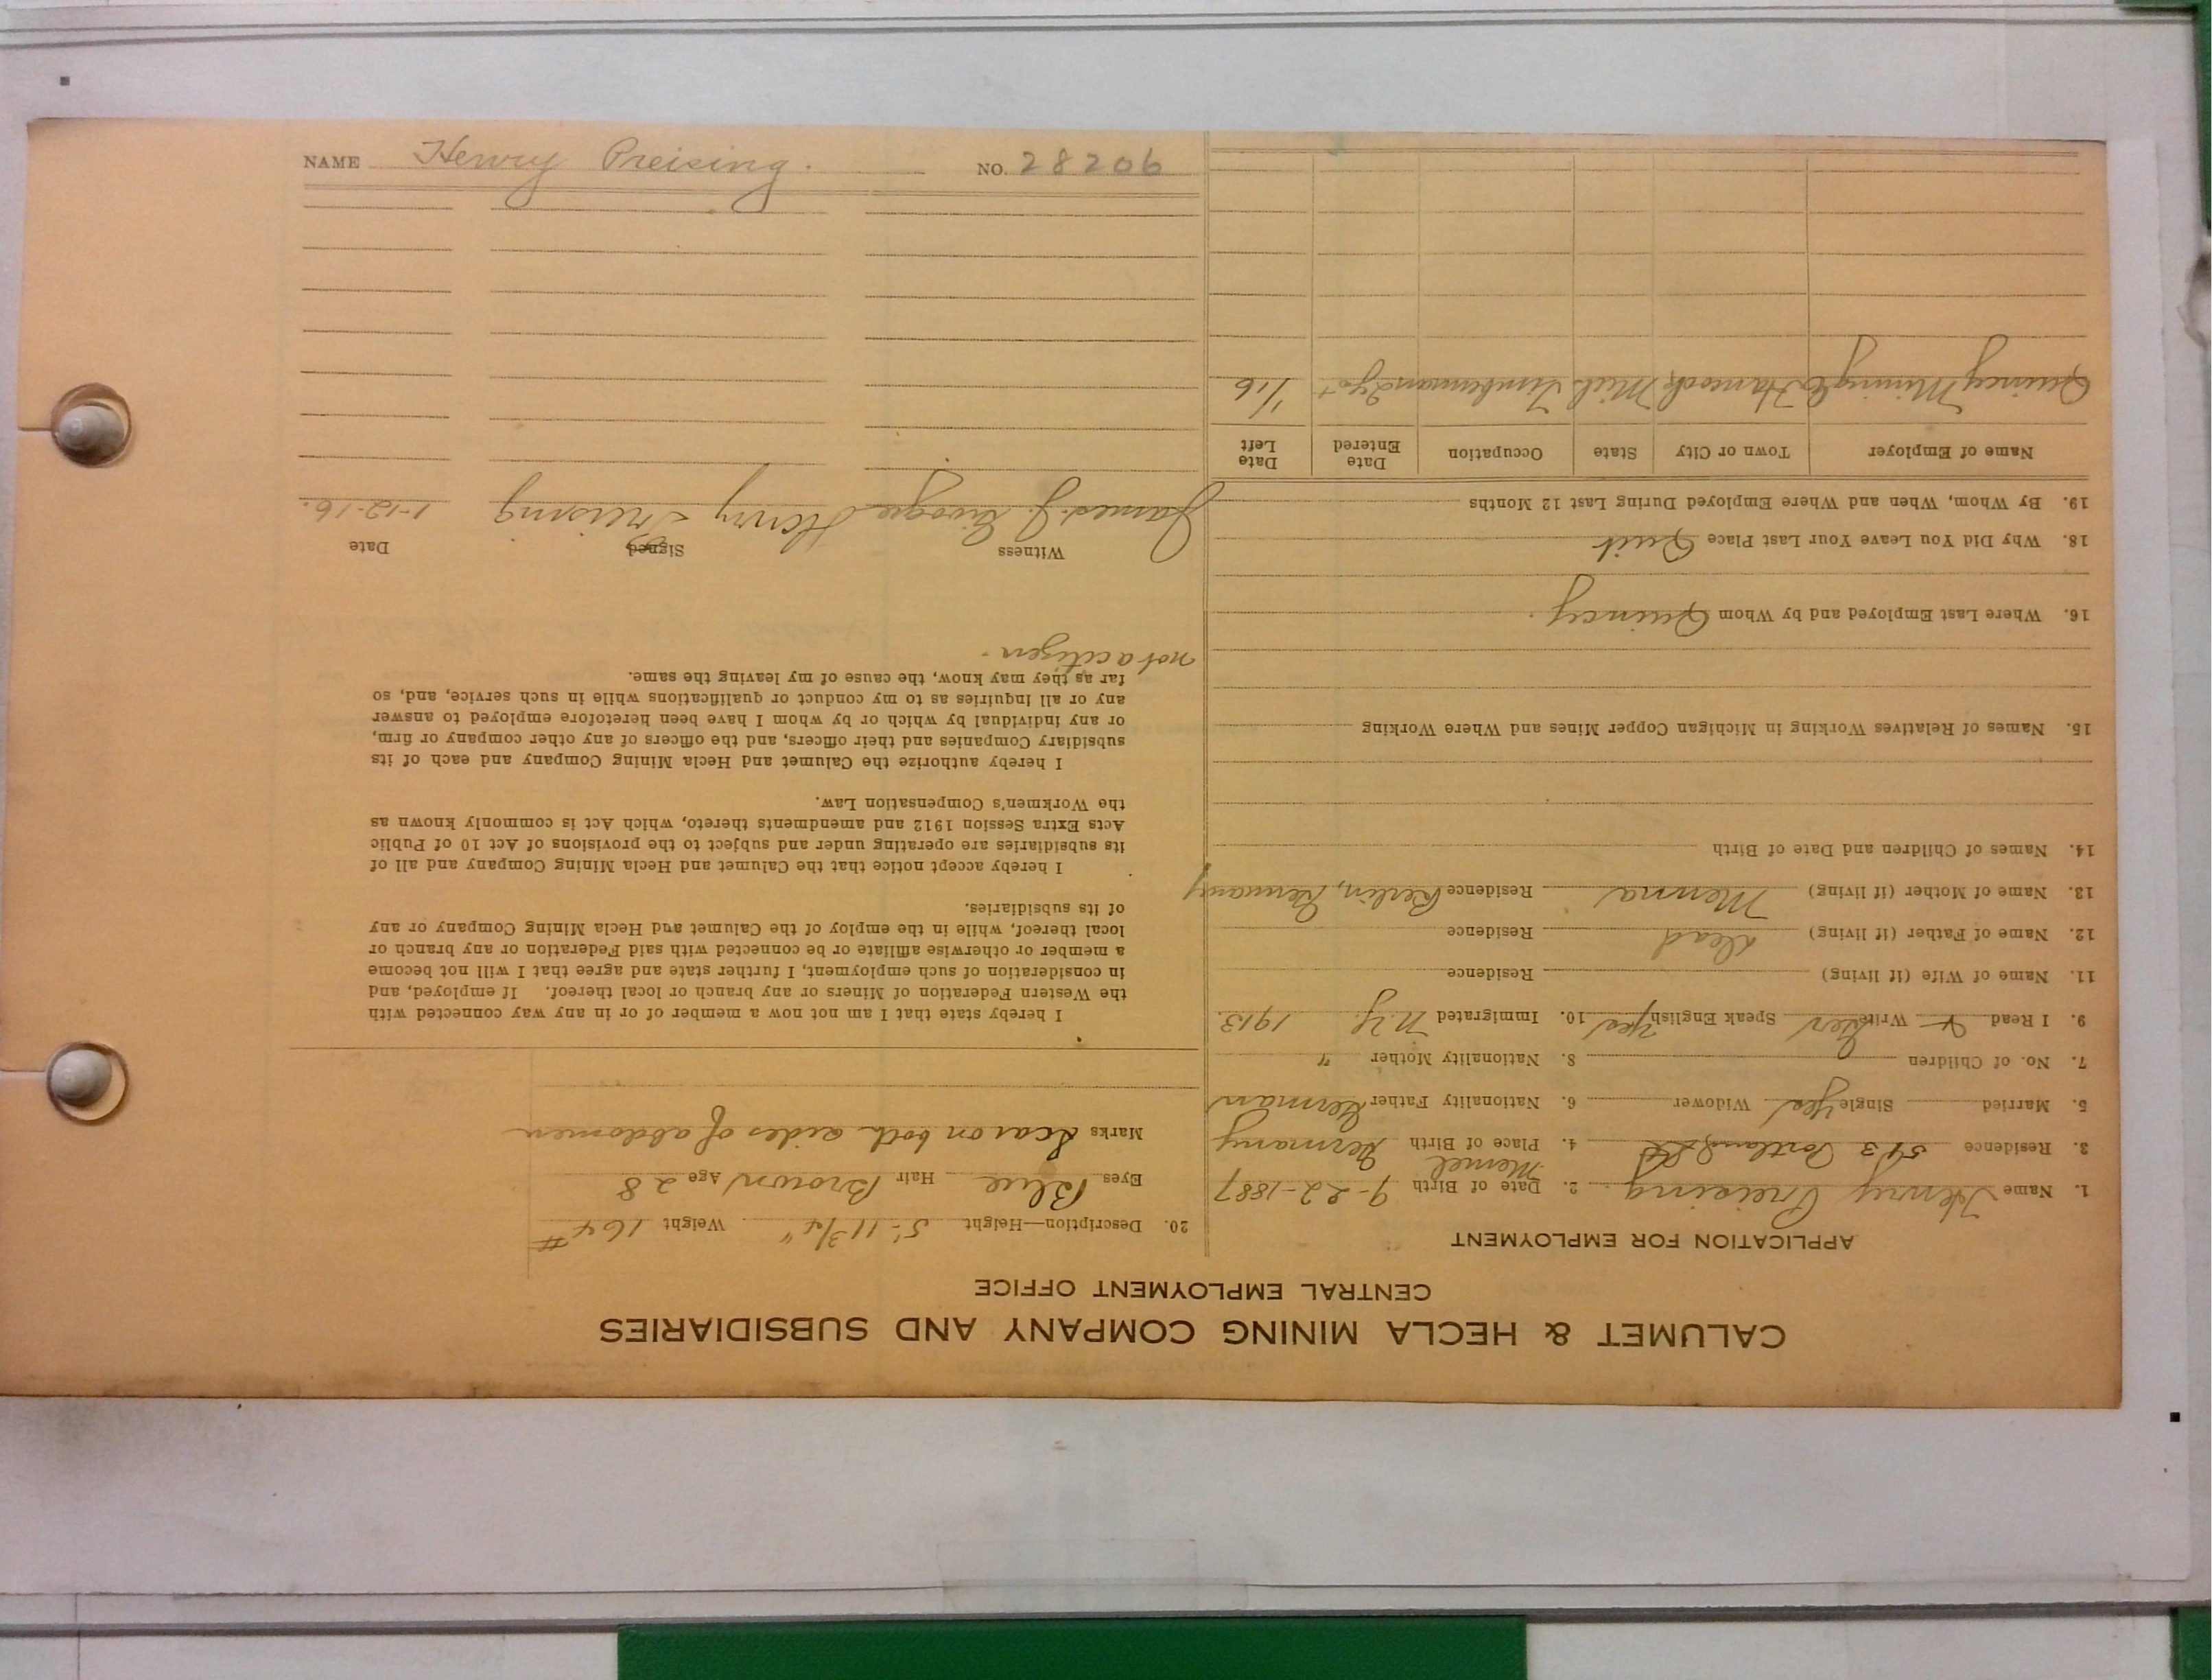 CALUMET & HECLA MINING COMPANY AND SUBSIDIARIES
CENTRAL EMPLOYMENT OFFICE
APPLICATION FOR EMPLOYMENT
1. Name Henry Preising 2. Date of Birth 9-22-1887
3. Residence 543 Portland St 4. Place of Birth Memel Germany
5. Married Single Yes Widower 6. Nationality Father German
7. No. of Children 8. Nationality Mother "
9. I Read & Write Ger Speak English Yes 10. Immigrated N.Y. 1913.
11. Name of Wife (if living) Residence
12. Name of Father (if living) Dead Residence
13. Name of Mother (if living) Menna Residence Berlin, Germany
14. Names of Children and Date of Birth
15. Names of Relatives Working in Michigan Copper Mines and Where Working
16. Where Last Employed and by Whom Quincy.
18. Why Did You Leave Your Last Place Quit
19. By Whom, When and Where Employed During Last 12 Months
Name of Employer Town or City State Occupation Date Entered Date Left
Quincy Mining Co Hancock Mich Timberman 1/16
20. Description—Height 5'-11 3/4" Weight 164 #
Eyes Blue Hair Brown Age 28
Marks Scar on both sides of abdomen
I hereby state that I am not now a member of or in any way connected with
the Western Federation of Miners or any branch or local thereof. If employed, and
in consideration of such employment, I further state and agree that I will not become
a member or otherwise affiliate or be connected with said Federation or any branch or
local thereof, while in the employ of the Calumet and Hecla Mining Company or any
of its subsidiaries.
I hereby accept notice that the Calumet and Hecla Mining Company and all of
its subsidiaries are operating under and subject to the provisions of Act 10 of Public
Acts Extra Session 1912 and amendments thereto, which Act is commonly known as
the Workmen's Compensation Law.
I hereby authorize the Calumet and Hecla Mining Company and each of its
subsidiary Companies and their officers, and the officers of any other company or firm,
or any individual by which or by whom I have been heretofore employed to answer
any or all inquiries as to my conduct or qualifications while in such service, and, so
far as they may know, the cause of my leaving the same.
not a citizen.
Witness Signed Date
James J. Henry Preising 1-12-16.
NAME Henry Preising. NO. 28206